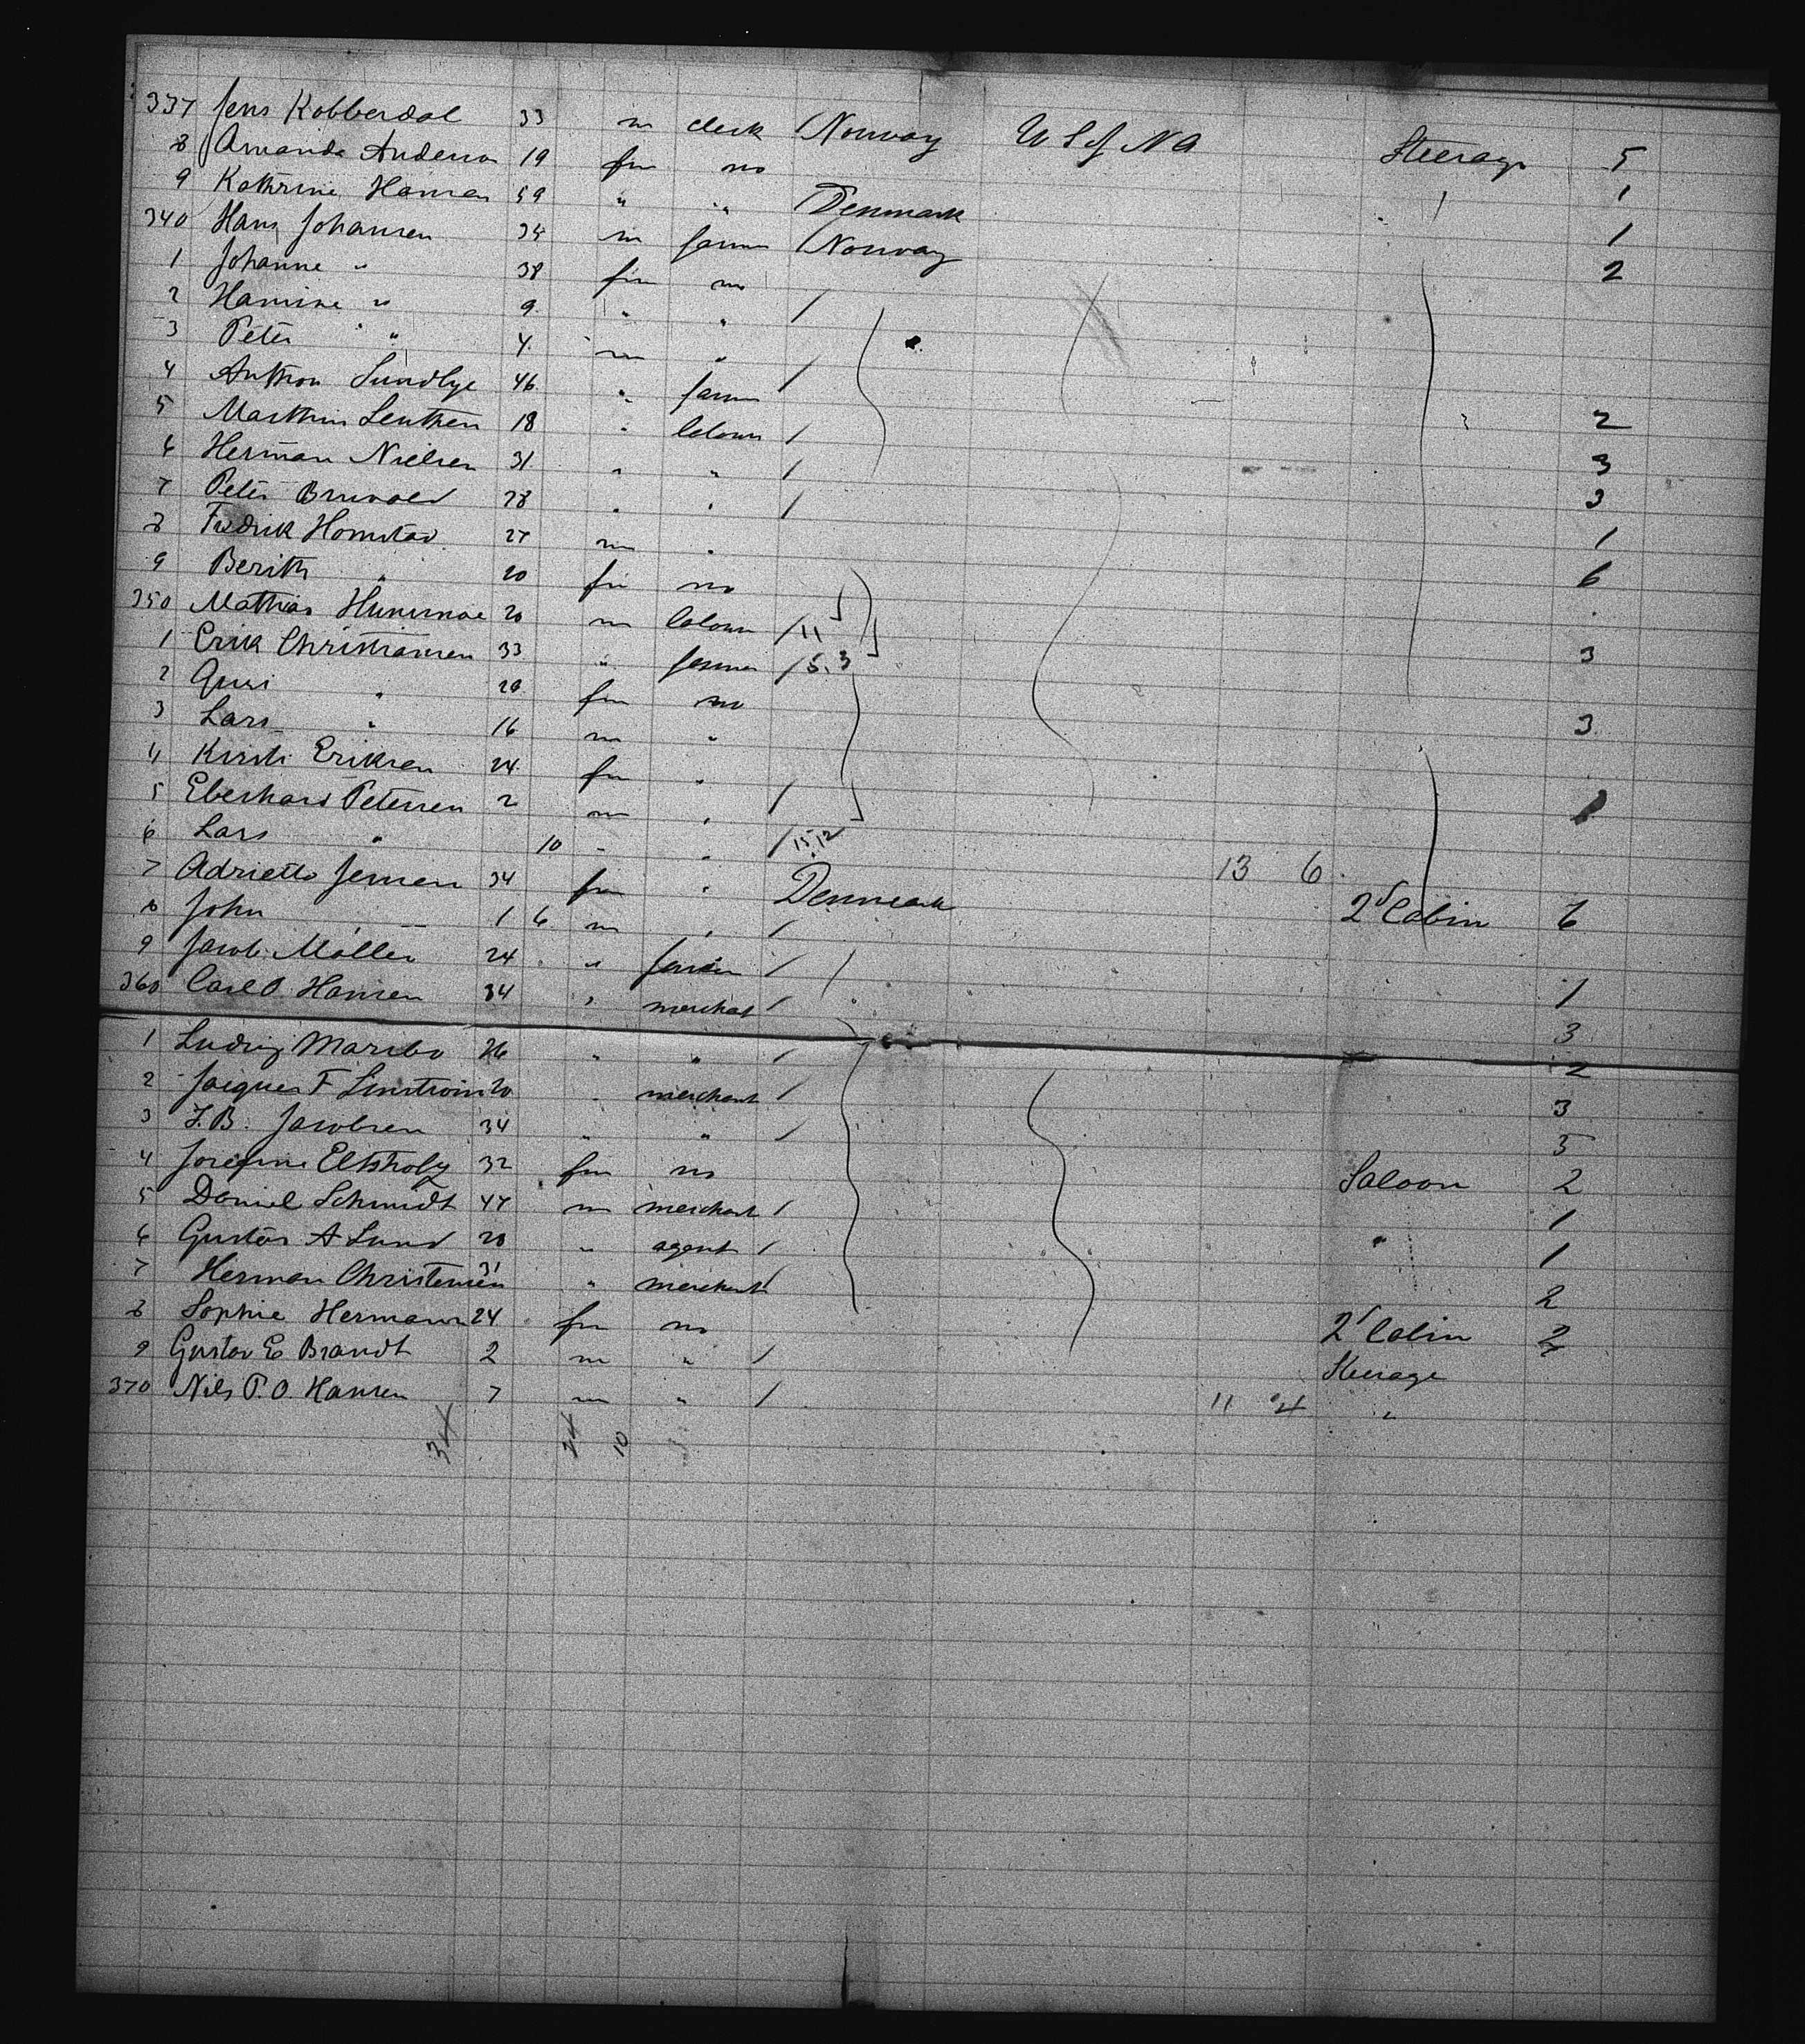 337 Jens Kobberdal 33 m clerk Norway U S of N A Steerage 5
8 Amanda Anderson 19 fm no 1
9 Kathrine Hansen 59 " " Denmark 1
340 Hans Johansen 34 m farmer Norway 2
1 Johanne " 38 fm no
2 Hansine " 9 " " /
3 Peter " 4 m "
4 Anthon Sundbye 46 " farmer / 2
5 Marthin 18 " labourer / 3
6 Herman Nielsen 31 " " / 3
7 Peter 28 " " / 1
8 Fredrik Homstad 27 m " 6
9 Berith " 20 fm no
350 Mathias 20 m labourer / 11 3
1 Erik Christiansen 33 " farmer / 5.3
2 Guri " 28 fm no 3
3 Lars " 16 m "
4 Kirsti Eriksen 24 fm "
5 Eberhard Petersen 2 m " /
6 Lars " 10 " " / 15.12
7 Adrietta Jensen 34 fm " Denmark 13 6 2d Cabin 6
8 John 1 6 m " /
9 Jacob Möller 24 " farmer / 1
360 Carl O. Hansen 34 " merchat / 3
1 Ludvig Maribo 26 " " / 2
2 Jacques F Linstrom 20 " merchant / 3
3 J.B. Jacobsen 34 " " / 5
4 Josefine 32 fm no Saloon 2
5 Daniel Schmidt 47 m merchant / 1
6 Gustav A Lund 28 " agent / " 1
7 Herman Christensen 31 " merchant / 2
8 Sophie Hermann 24 fm no 2d Cabin 2
9 Gustav E Brandt 2 m " / Steerage
370 Nils P. O. Hansen 7 m " / 11 4 "
34 24 10